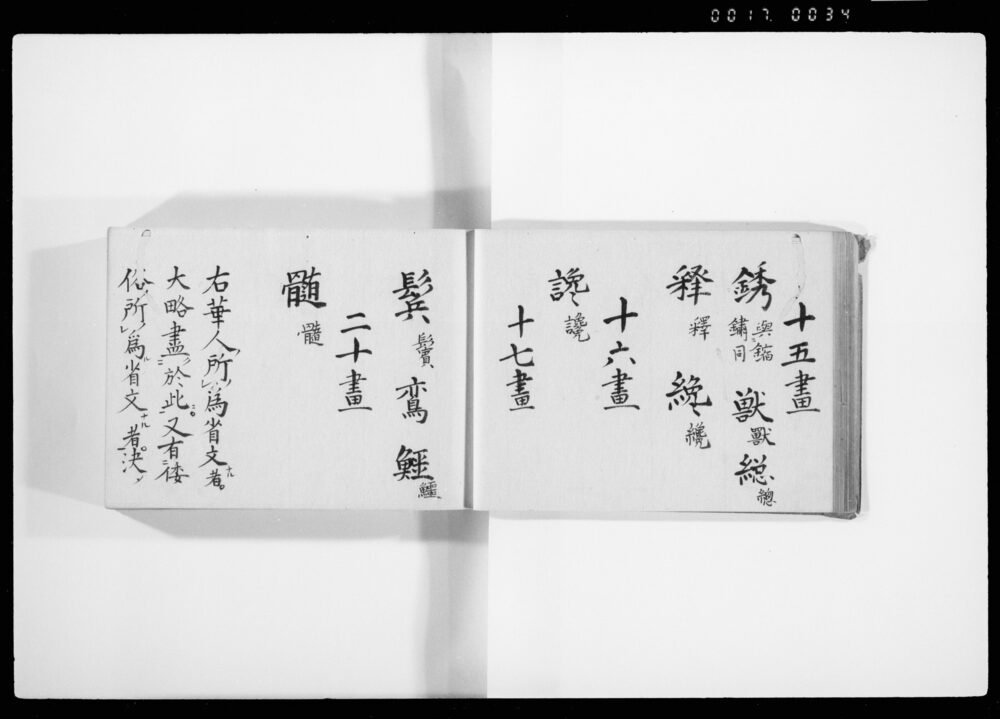 0017 0034
十五畫
銹 與鏥鏽同 獣 獸 総 總
釋 釋 纔 纔
十六畫
讒 讒
十七畫
鬂 鬢 鸾 鯉
二十畫
髓 髓
右華人所為省文者
大略盡於此又有倭
俗所為省文者決